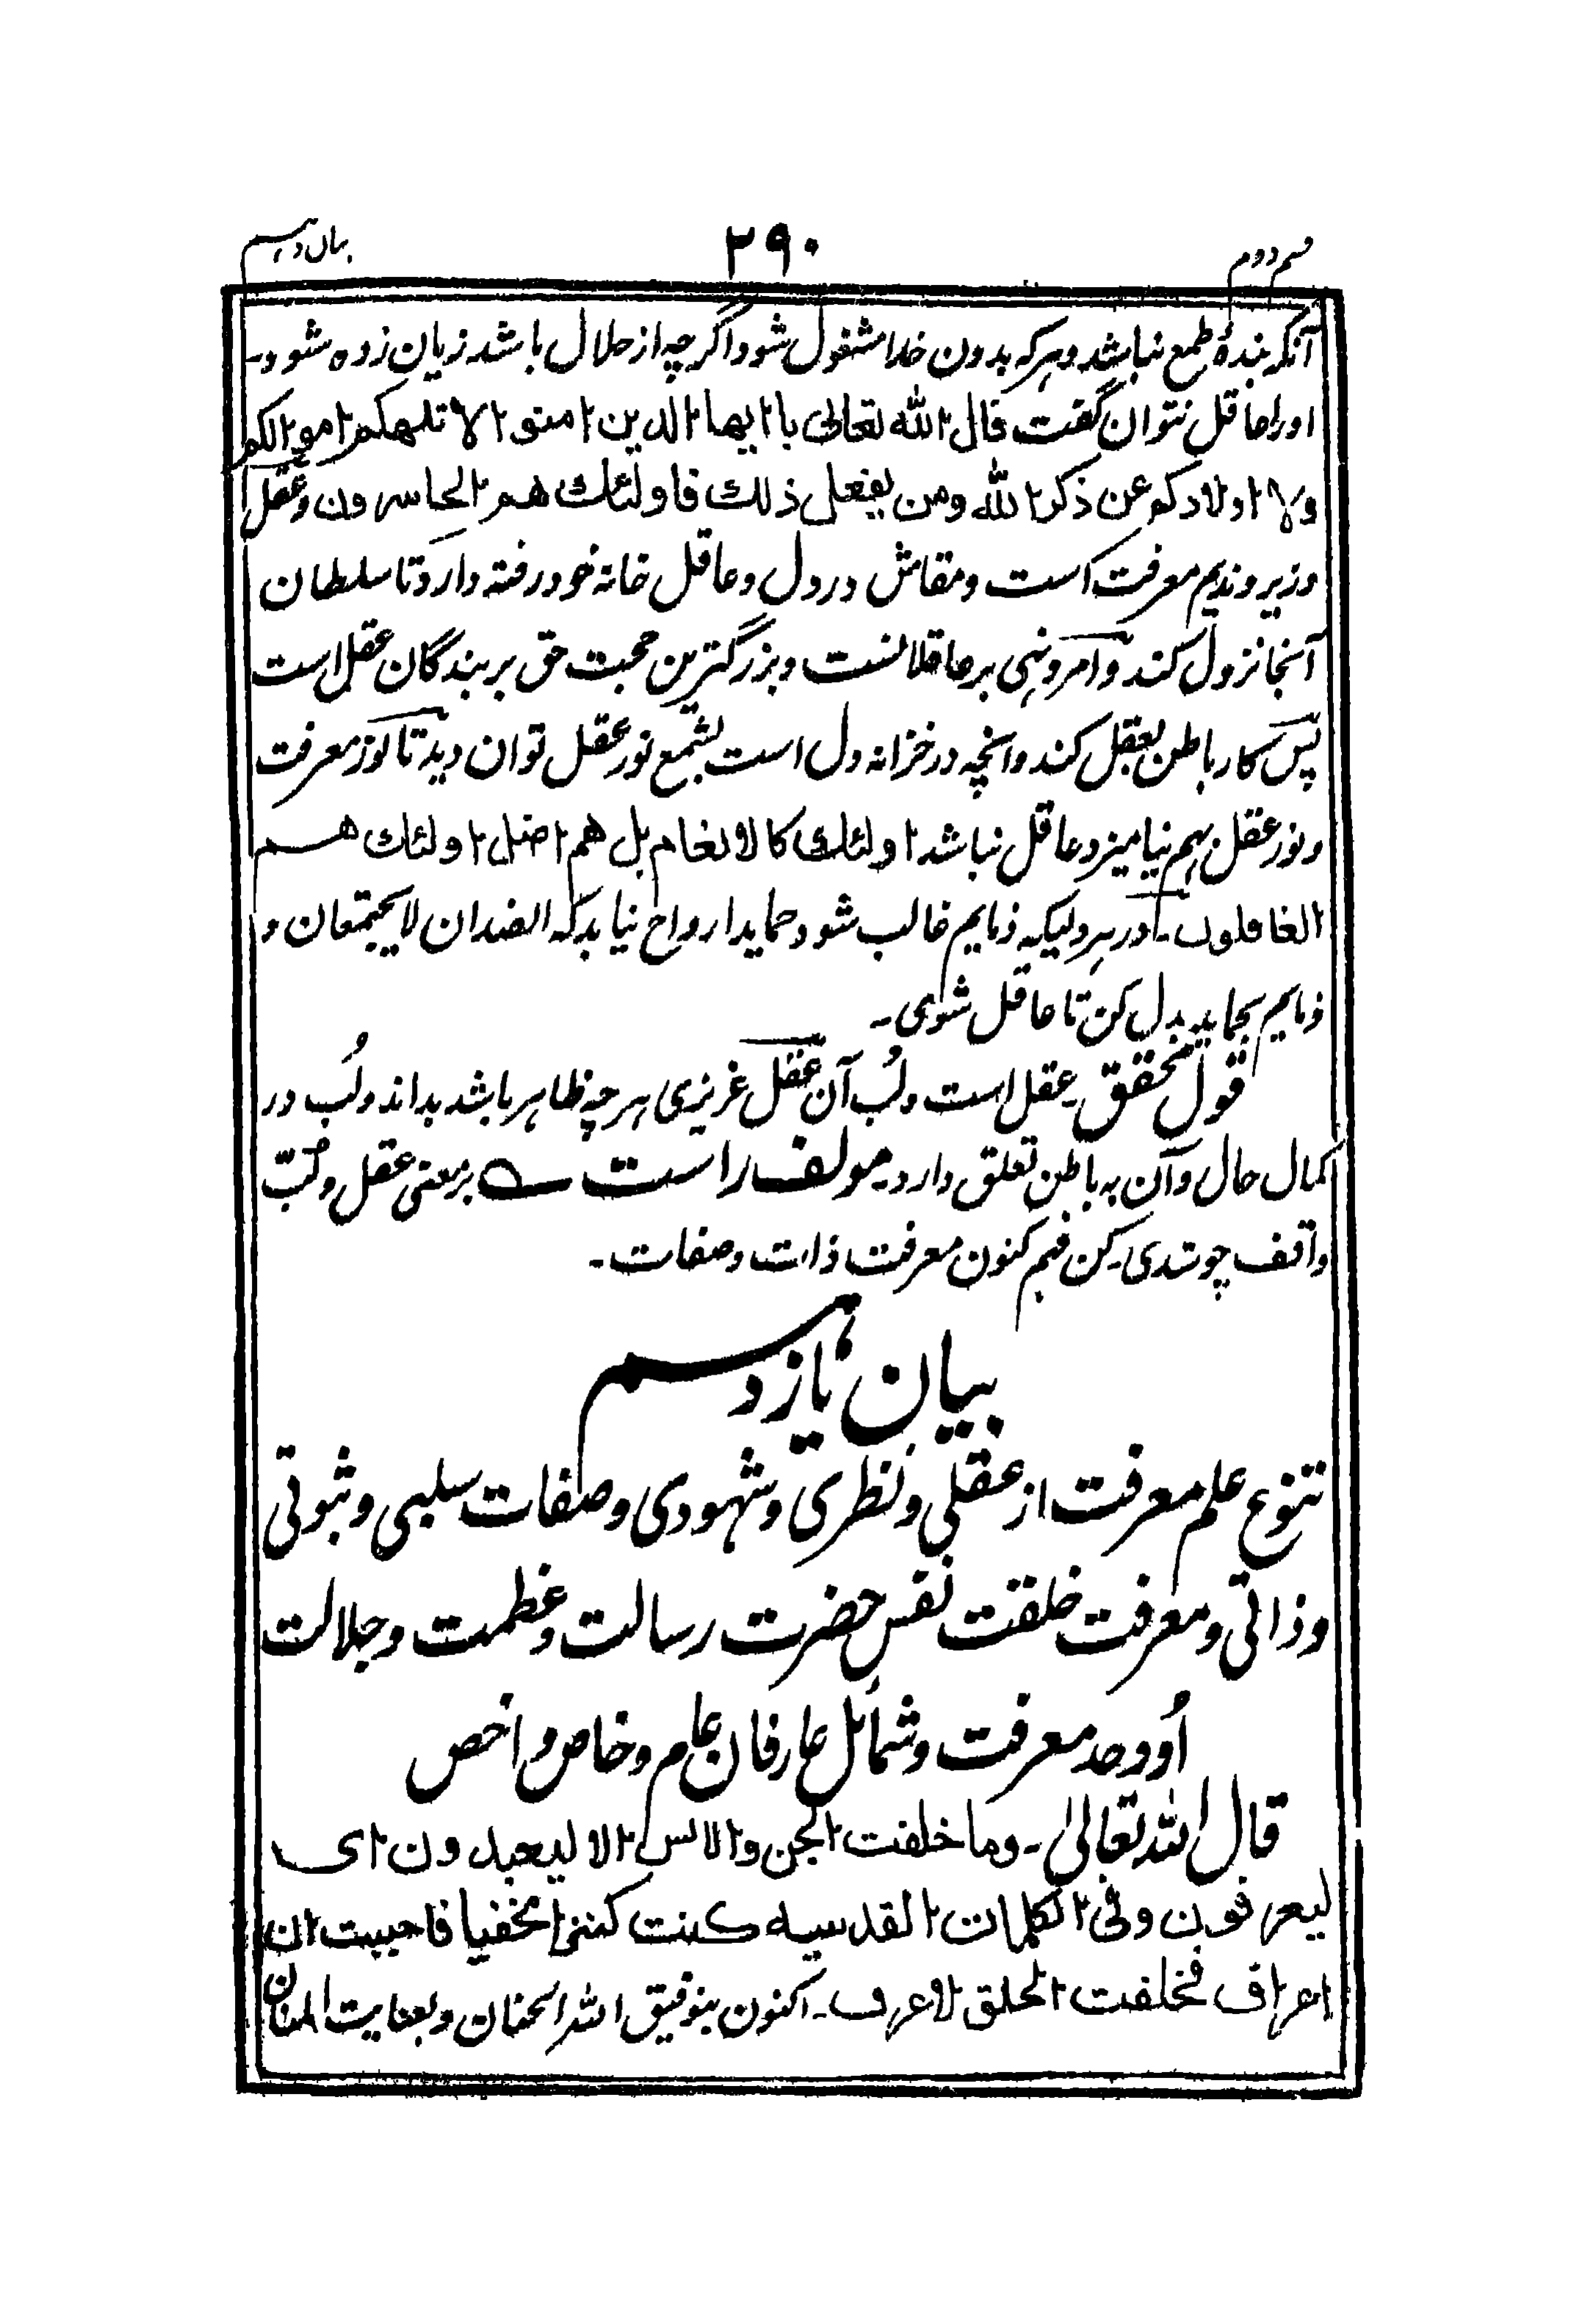 قسم دوم
۲۹۰
بیان دہم
آنکه بندهٔ طمع نباشد و ہر که بدون خدا مشغول شود اگر چه از حلال باشد زیان زده شود۔
اورا عاقل نتوان گفت قال الله تعالى يا ايها الذين امنوا لا تلهكم اموالكم
ولا اولادكم عن ذكر الله ومن يفعل ذلك فاولئك هم الخاسرون و عقل
وزیر و ندیم معرفت است و مقامش در دل و عاقل خانه خود رفته دارد تا سلطان
آنجا نزول کند و امر و نہی بر عاقلانست و بزرگترین حجت حق بر بندگان عقل است
پس کار باطن بعقل کند و آنچه در خزانه دل است بشمع نور عقل توان دید تا نور معرفت
و نور عقل بہم نیامیزد عاقل نباشد اولئك كالانعام بل هم اضل اولئك هم
الغافلون۔ در ہر دلیکه ذمایم غالب شود حماید ارواح نیاید که الضدان لا یجتمعان و
ذمایم بحماید بدل کن تا عاقل شوی۔
قول محقق۔ عقل است و لُب آن عقل غریزی ہر چه ظاہر باشد بداند و لُب در
کمال حال و آن به باطن تعلق دارد۔ مولف راست ؎ بر معنی عقل و لُبّ
واقف چو شدی۔ کن فہم کنون معرفت ذات و صفات۔
بیان یازدہم
تنوع علم معرفت از عقلی و نظری و شہودی و صفات سلبی و ثبوتی
و ذاتی و معرفت خلقت نفس حضرت رسالت و عظمت و جلالت
اُو و حد معرفت و شمائل عارفان عام و خاص و اخص
قال الله تعالىٰ۔ وما خلقت الجن والانس الا ليعبدون اى
ليعرفون وفى الكلمات القدسيه كنت كنزا مخفيا فاحببت ان
اعرف فخلقت الخلق لاعرف۔ اکنون بتوفیق الله الحنان و بعنایت المنان